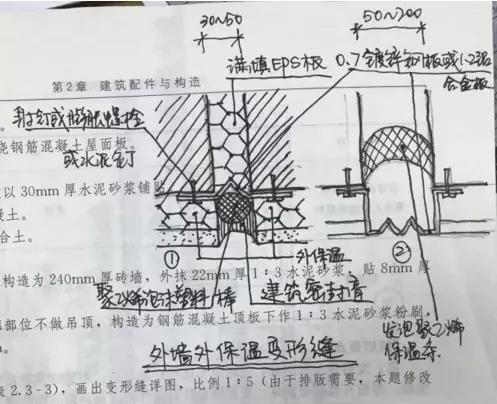 30~50
50~200
满填EPS板
0.7镀锌钢板或1.2铝
合金板
第2章 建筑配件与构造
射钉或膨胀螺栓
浇钢筋混凝土屋面板。
或水泥钉
以30mm厚水泥砂浆铺贴
凝土。
合土。
①
②
外保温
构造为240mm厚砖墙,外抹22mm厚1:3水泥砂浆,贴8mm厚
聚乙烯泡沫塑料棒
建筑密封膏
发泡聚乙烯
保温条
部位不做吊顶,构造为钢筋混凝土顶板下作1:3水泥砂浆粉刷,
外墙外保温变形缝
表2.3-3),画出变形缝详图,比例1:5(由于排版需要,本题修改